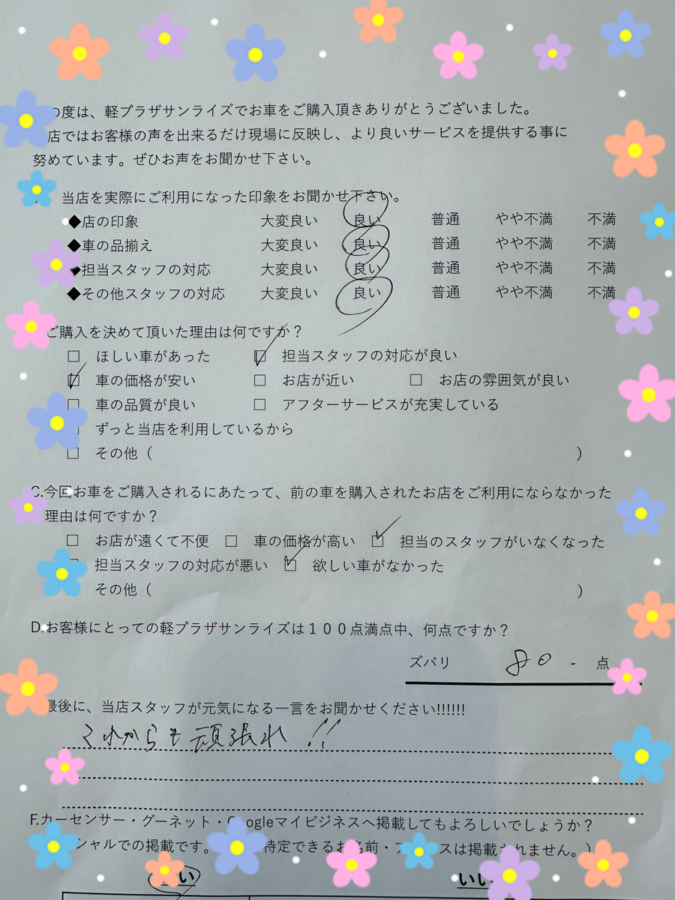 の度は、軽プラザサンライズでお車をご購入頂きありがとうございました。
店ではお客様の声を出来るだけ現場に反映し、より良いサービスを提供する事に
努めています。ぜひお声をお聞かせ下さい。
当店を実際にご利用になった印象をお聞かせ下さい。
◆店の印象 大変良い 良い 普通 やや不満 不満
◆車の品揃え 大変良い 良い 普通 やや不満 不満
◆担当スタッフの対応 大変良い 良い 普通 やや不満 不満
◆その他スタッフの対応 大変良い 良い 普通 やや不満 不満
ご購入を決めて頂いた理由は何ですか？
□ ほしい車があった ☑ 担当スタッフの対応が良い
☑ 車の価格が安い □ お店が近い □ お店の雰囲気が良い
□ 車の品質が良い □ アフターサービスが充実している
ずっと当店を利用しているから
□ その他（ ）
C.今回お車をご購入されるにあたって、前の車を購入されたお店をご利用にならなかった
理由は何ですか？
□ お店が遠くて不便 □ 車の価格が高い ☑ 担当のスタッフがいなくなった
担当スタッフの対応が悪い ☑ 欲しい車がなかった
その他（ ）
D.お客様にとっての軽プラザサンライズは１００点満点中、何点ですか？
ズバリ 80 - 点
最後に、当店スタッフが元気になる一言をお聞かせください!!!!!!
これからも頑張れ!!
F.カーセンサー・グーネット・Googleマイビジネスへ掲載してもよろしいでしょうか？
シャルでの掲載です。 特定できるお名前・ スは掲載されません。）
い いい